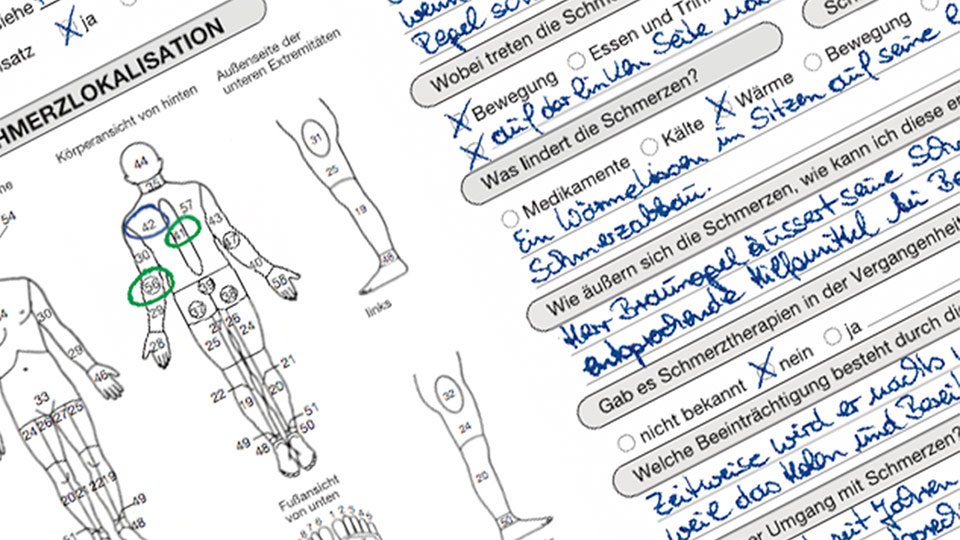 siehe
ja
satz
HMERZLOKALISATION
Körperansicht von hinten
Außenseite der
unteren Extremitäten
54
44
35
57
42
41
43
47
30
40
56
58
29
39
37
38
28
27 26
24
25
21
22
19
20
51
50
49
48
31
25
19
48
links
30
29
46
33
24 26 27 25
20 21 22 19
49
48
32
24
20
50
Fußansicht
von unten
Regel
Wobei treten die Schmer
Bewegung
Essen und Trin
auf der linken Seite
Was lindert die Schmerzen?
Medikamente
Kälte
Wärme
Bewegung
Ein Wärmekissen im Sitzen auf seine
Schmerzabbau.
Wie äußern sich die Schmerzen, wie kann ich diese er
Herr Braunagel äussert seine
entsprechende Hilfsmittel bei
Gab es Schmerztherapien in der Vergangenheit
nicht bekannt
nein
ja
Welche Beeinträchtigung besteht durch die
Zeitweise wird er nachts
weil das Holen und
er Umgang mit Schmerzen?
seit Jahren